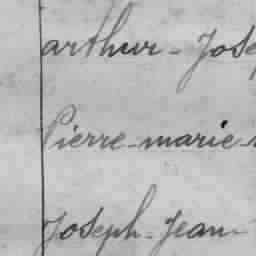 arthur - Jose
Pierre - marie -
Joseph - Jean -